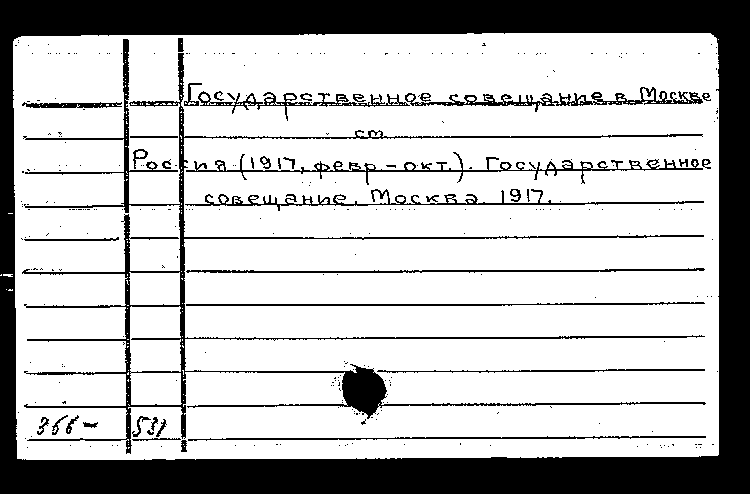 Государственное совещание в Москве
см
Россия (1917, февр – окт.). Государственное
совещание. Москва. 1917.
366 – 531